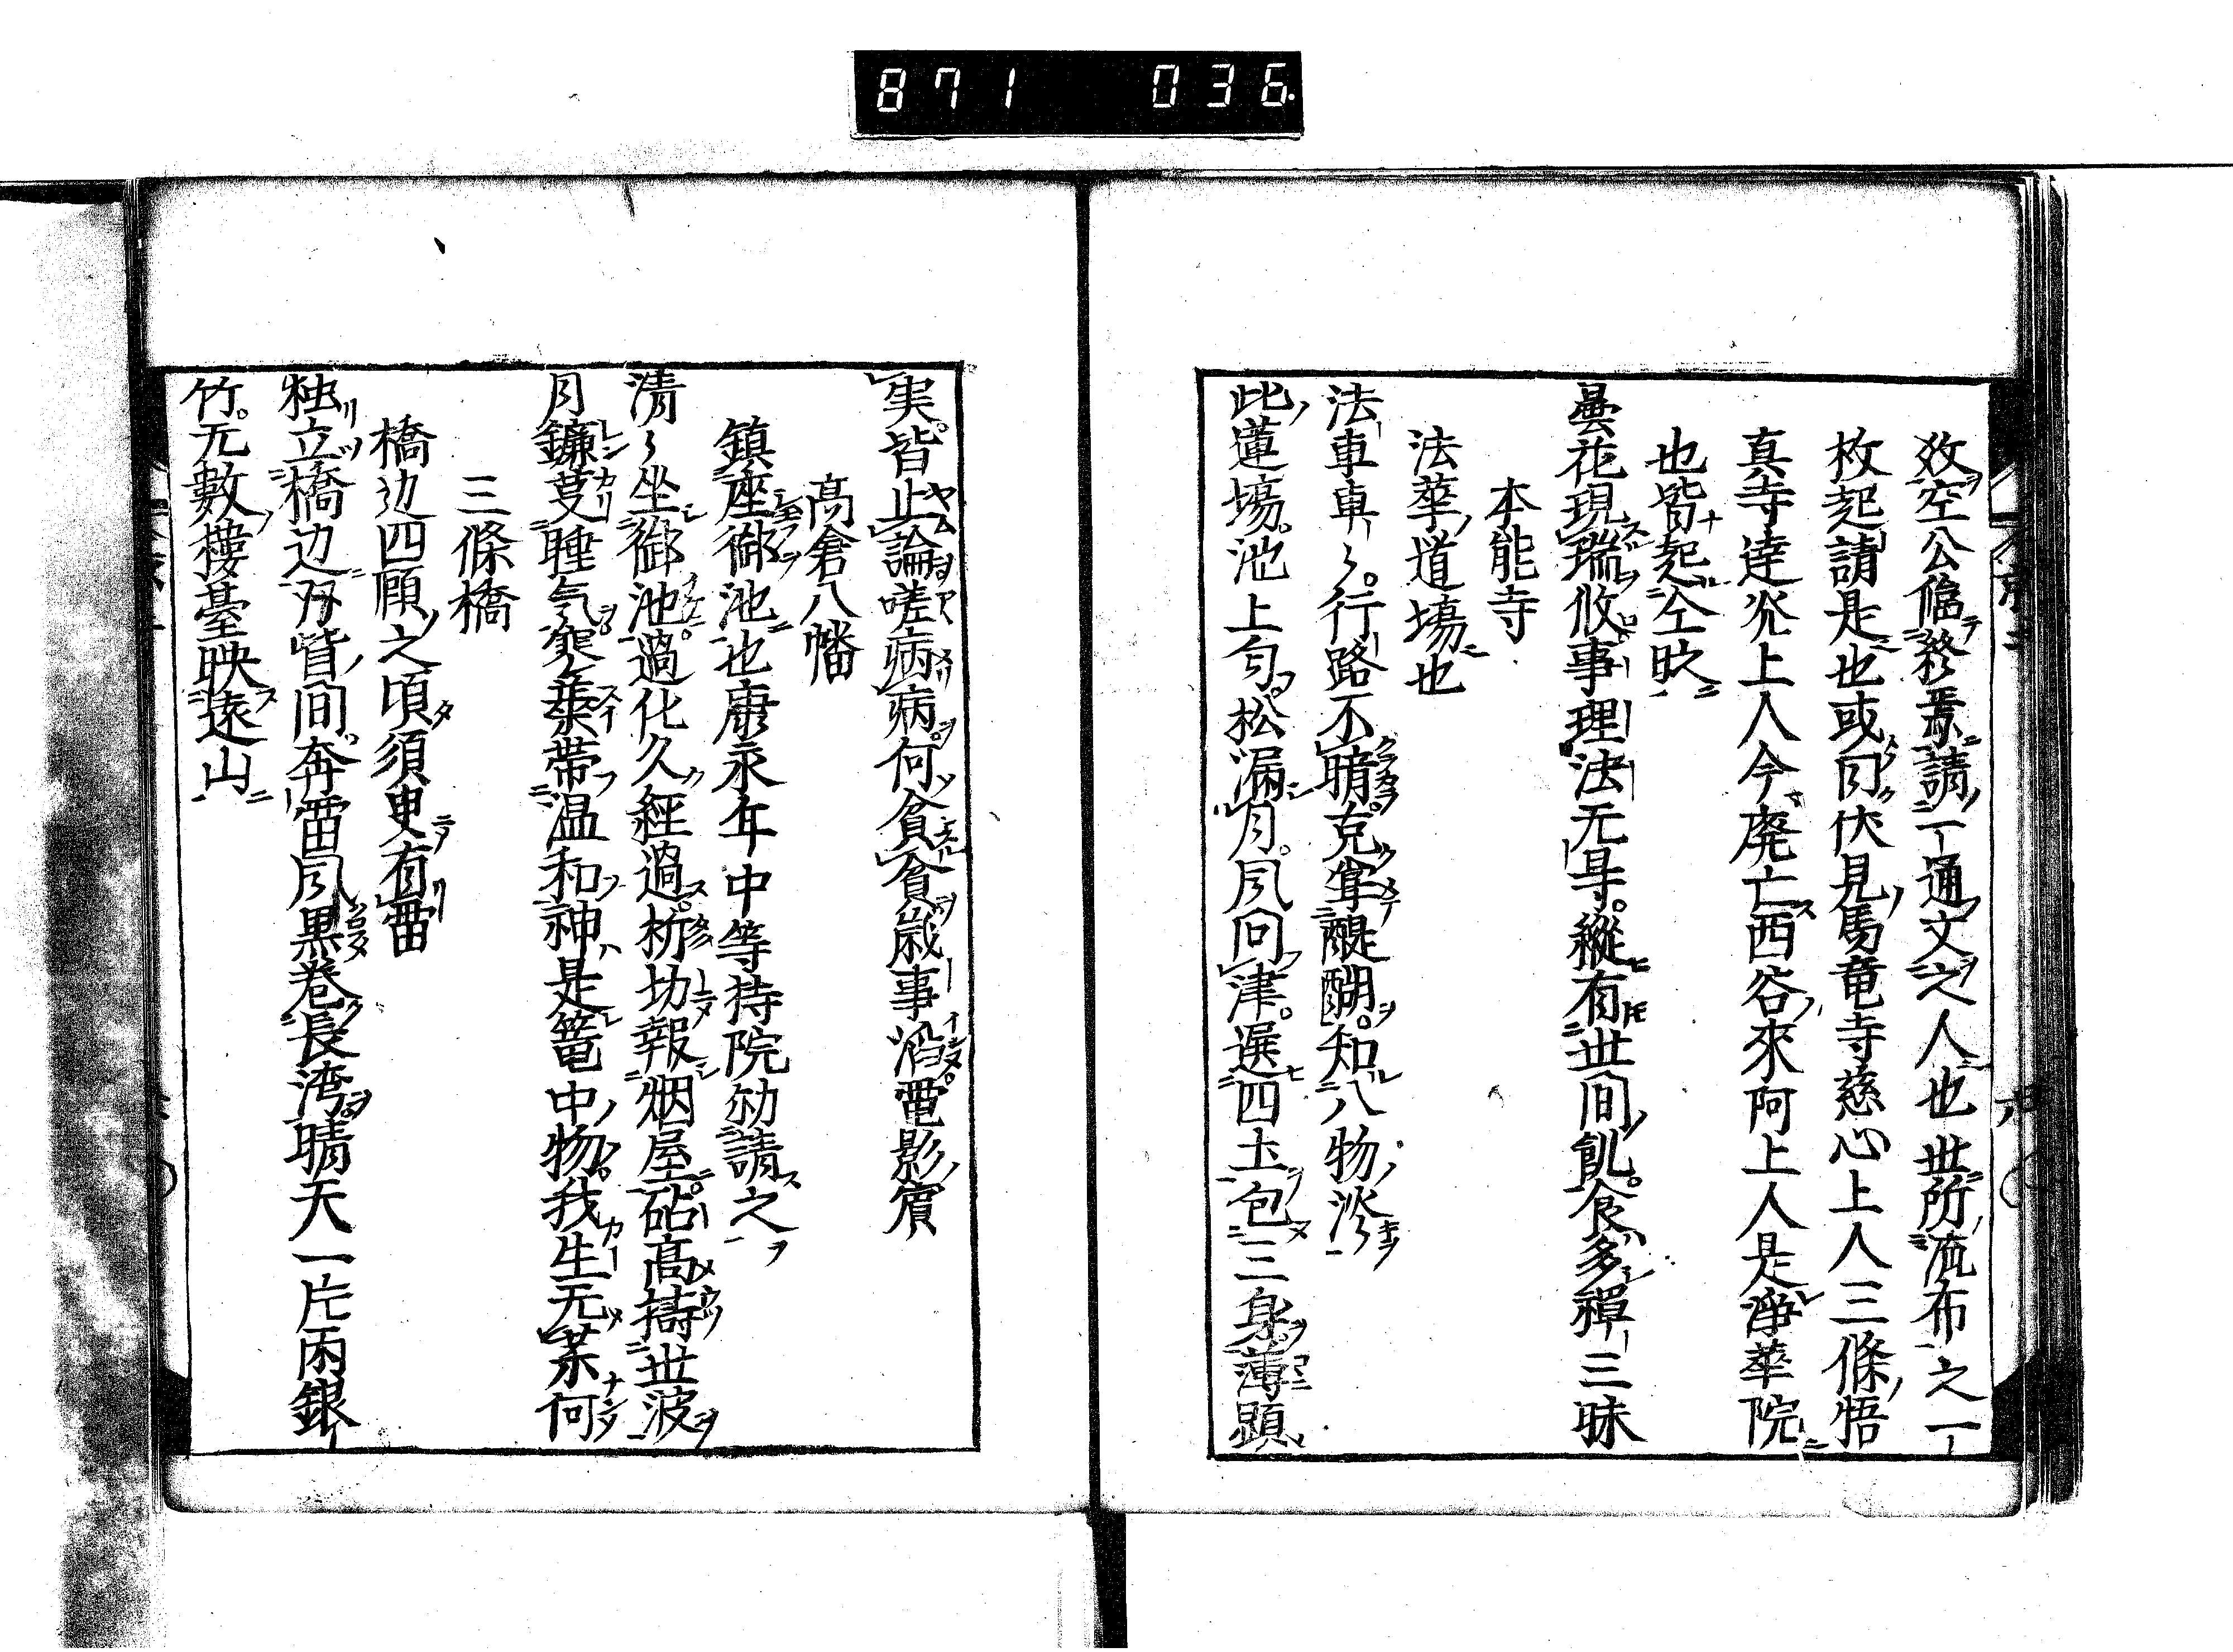 871 036
效空公偏發素請一通文之人也世所流布之一
枚起請是也或同伏見馬竜寺慈心上人三條悟
真寺達光上人今廃亡西谷來阿上人是淨華院
也皆起空
曇花現瑞攸事理法无㝵縱有世間飢食多禪三昧
本能寺
法華道場也
法車車〻行路不暗克醍醐知八物
此蓮場池上匂松漏月風問津選四土包三身薄顕
実皆止論嗟病病何貧貧歳事滔電影賓
高倉八幡
鎮座御池也康永年中等持院劬請之
清〻坐御池過化久經過祈功報烟屋砧高擣世波
月鐮蔓睡気葉帯温和神是篭中物我生无業何
三條橋
橋辺四顧之頃須臾有雷
独立橋辺双眥間奔雷風黒巻長湾晴天一片雨銀
竹无數樓臺映遠山